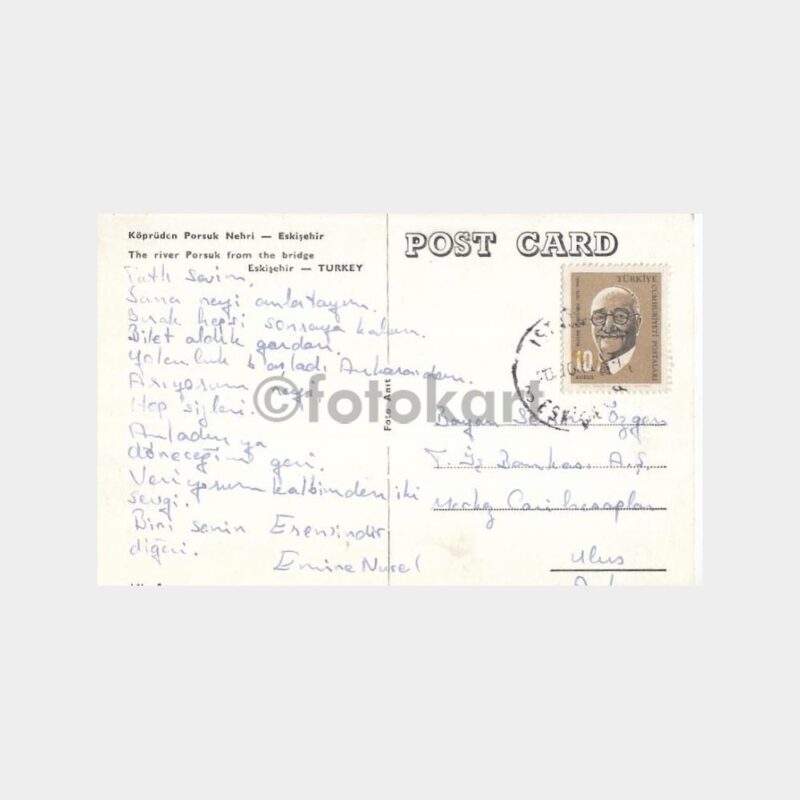 Köprüden Porsuk Nehri — Eskişehir
The river Porsuk from the bridge
Eskişehir — TURKEY
POST CARD
Tatlı Sevim,
Sana neyi anlatayım.
Bırak hepsi sonraya kalsın.
Bilet aldık gardan.
Yolculuk başladı Ankaradan.
Arıyorum
Hep
Anladın ya
döneceğimi geri.
Veriyorum kalbimden iki
sevgi.
Biri senin Esensindir
diğeri.
Emine Nurel
Foto Anıt
©fotokart
TÜRKİYE
CUMHURİYETİ POSTALARI
10
KURUŞ
ESKİŞEHİR
Bayan Özgen
T. İş Bankası A.Ş.
Ulus